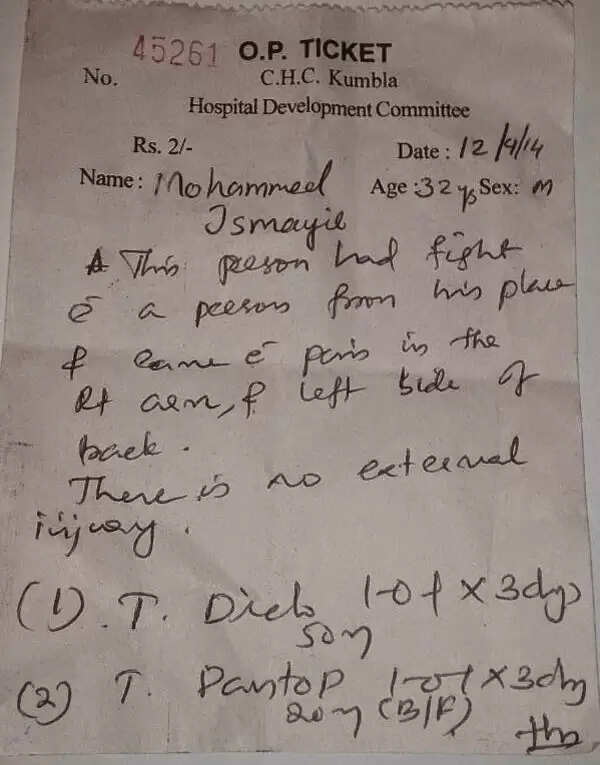 45261 O.P. TICKET
No. C.H.C. Kumbla
Hospital Development Committee
Rs. 2/- Date : 12/4/14
Name : Mohammed Age : 32 ys Sex: M
Ismayil
This person had fight
c̄ a person from his place
& came c̄ pain in the
Rt arm, & left side of
back.
There is no external
injury.
(1). T. Diclo 1-0-1 x 3dys
50m
(2) T. Pantop 1-0-1 x 3dys
20m (B/F)